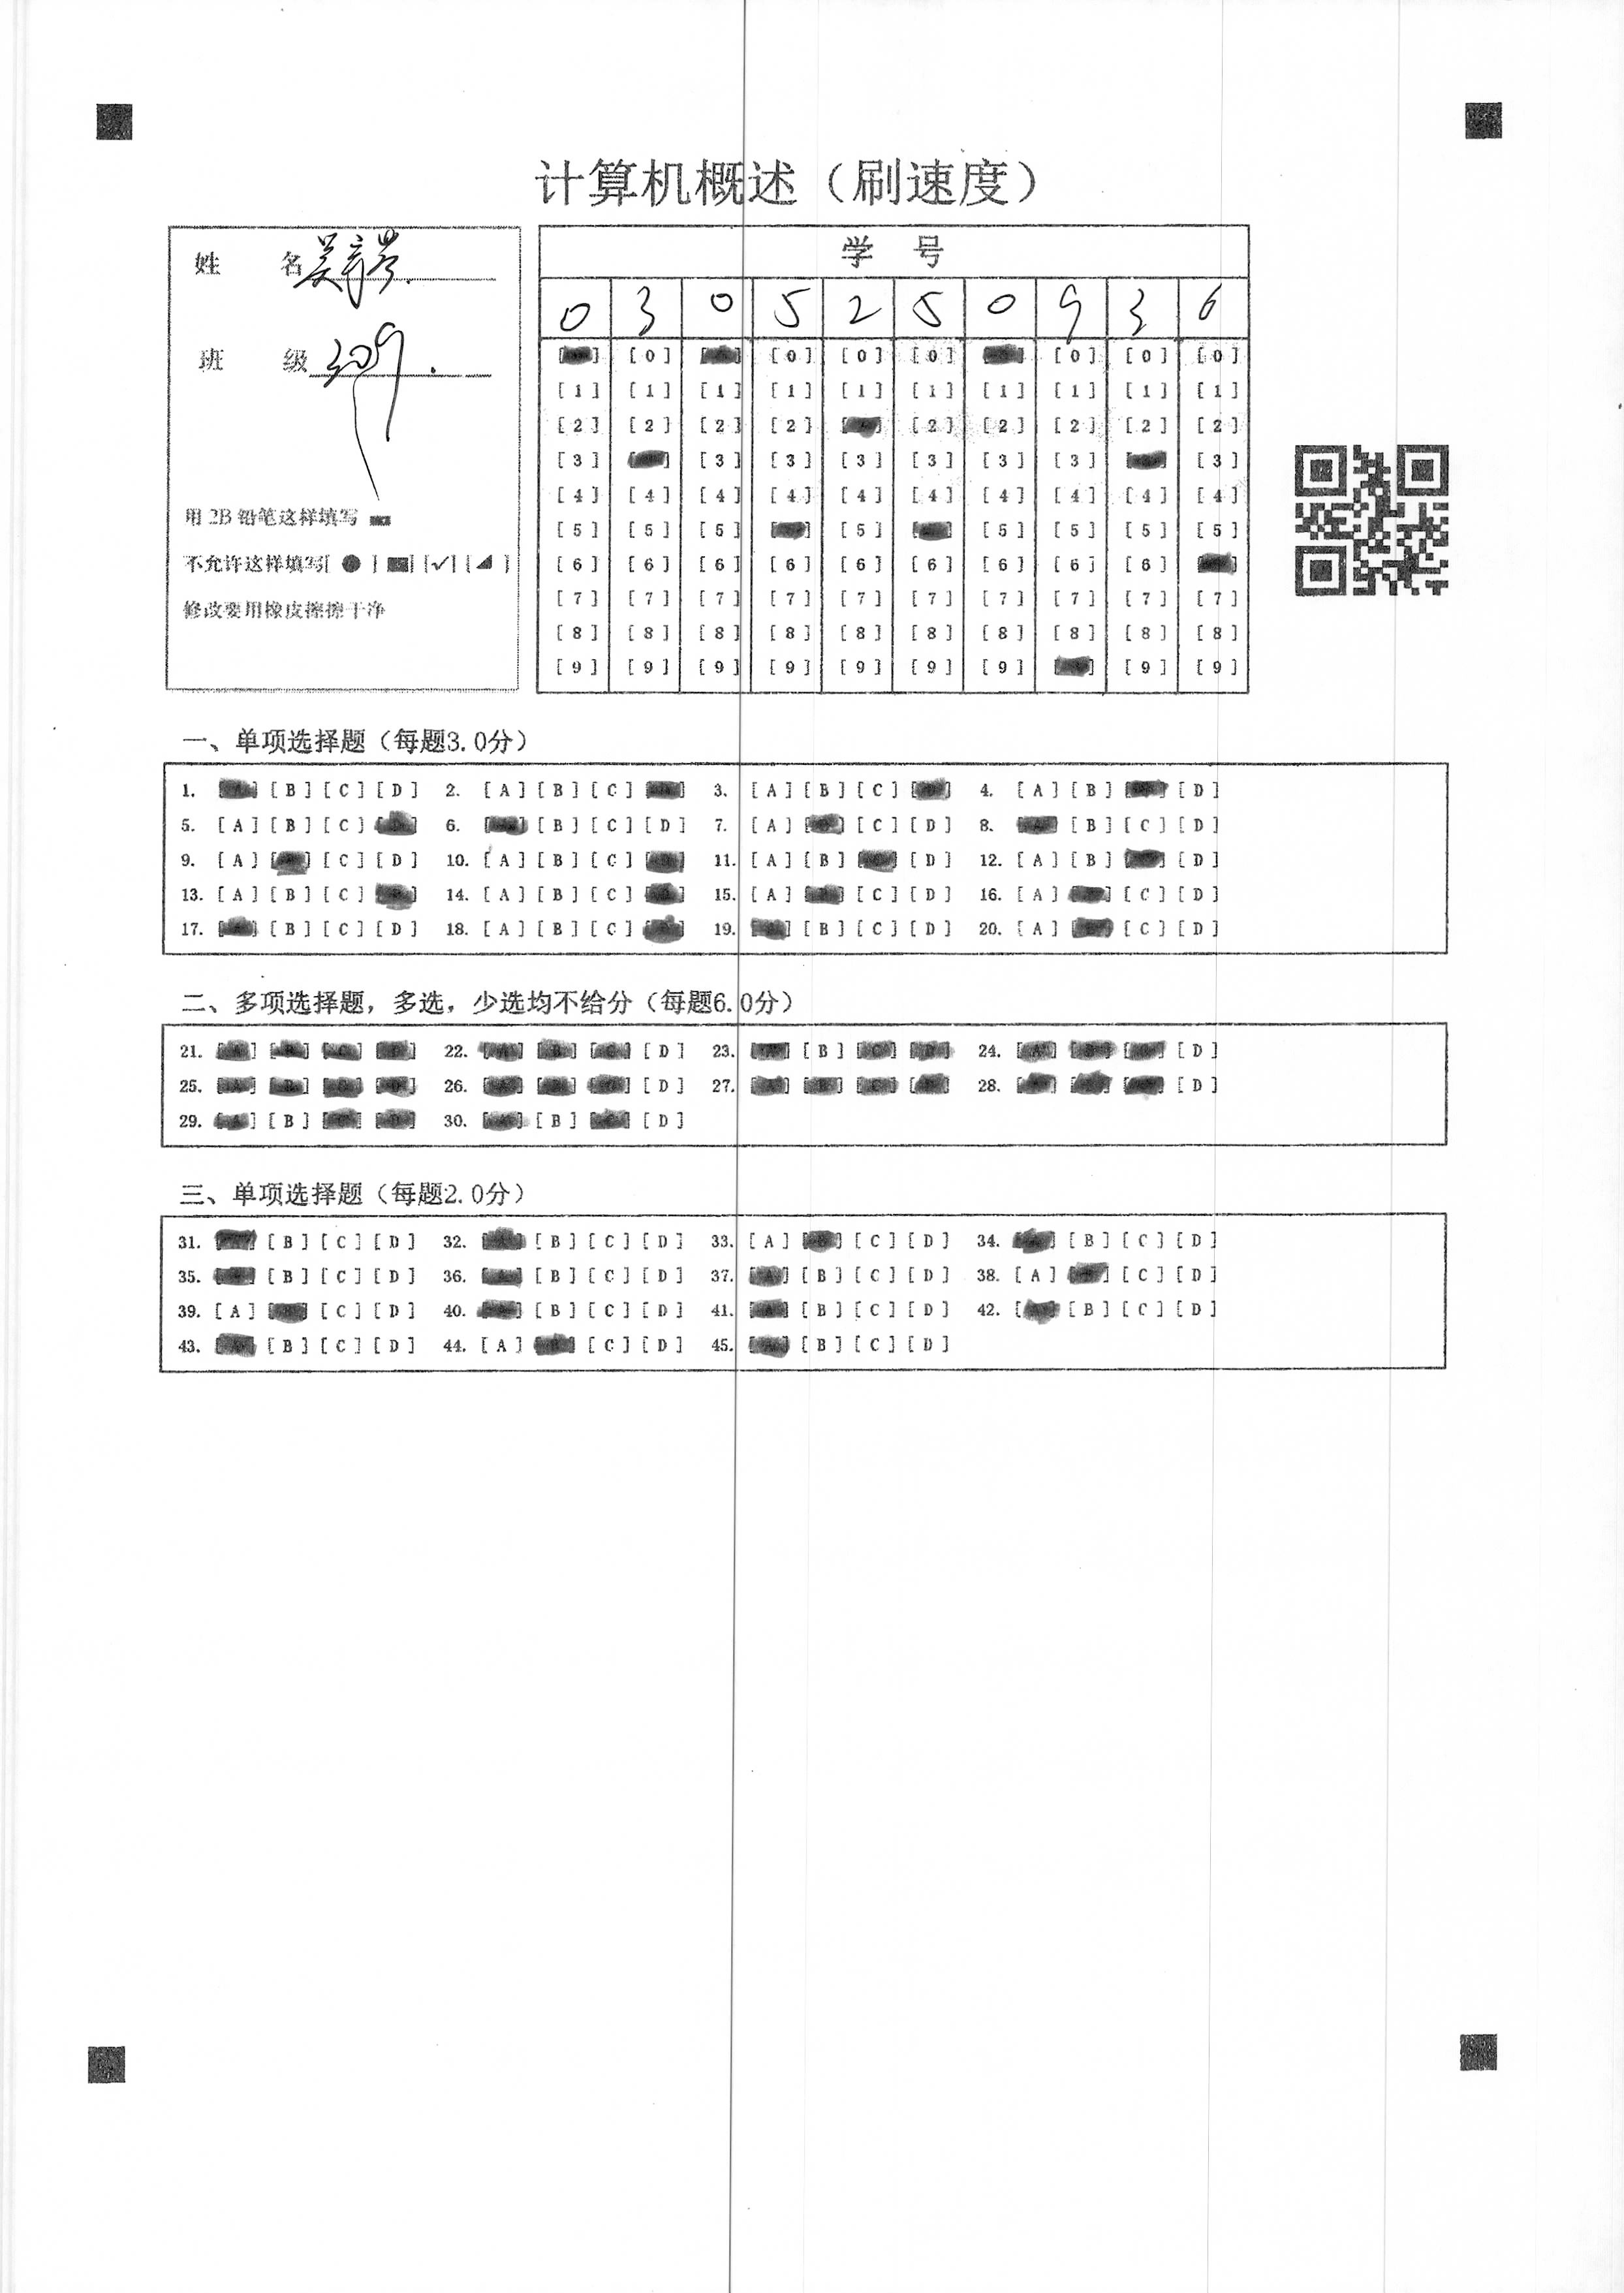 计算机概述（刷速度）
姓 名
班 级 309.
用 2B 铅笔这样填写
不允许这样填写[ ● ] [■] [✓] [◢ ]
修改要用橡皮擦擦干净
学 号
0 3 0 5 2 5 0 9 3 6
[0] [0] [0] [0] [0] [0]
[1] [1] [1] [1] [1] [1] [1] [1] [1] [1]
[2] [2] [2] [2] [2] [2] [2] [2] [2]
[3] [3] [3] [3] [3] [3] [3] [3]
[4] [4] [4] [4] [4] [4] [4] [4] [4] [4]
[5] [5] [5] [5] [5] [5] [5] [5]
[6] [6] [6] [6] [6] [6] [6] [6] [6]
[7] [7] [7] [7] [7] [7] [7] [7] [7] [7]
[8] [8] [8] [8] [8] [8] [8] [8] [8] [8]
[9] [9] [9] [9] [9] [9] [9] [9] [9]
一、单项选择题（每题3.0分）
1. [B] [C] [D] 2. [A] [B] [C] 3. [A] [B] [C] 4. [A] [B] [D]
5. [A] [B] [C] 6. [B] [C] [D] 7. [A] [C] [D] 8. [B] [C] [D]
9. [A] [C] [D] 10. [A] [B] [C] 11. [A] [B] [D] 12. [A] [B] [D]
13. [A] [B] [C] 14. [A] [B] [C] 15. [A] [C] [D] 16. [A] [C] [D]
17. [B] [C] [D] 18. [A] [B] [C] 19. [B] [C] [D] 20. [A] [C] [D]
二、多项选择题，多选，少选均不给分（每题6.0分）
21. 22. [D] 23. [B] 24. [D]
25. 26. [D] 27. 28. [D]
29. [B] 30. [B] [D]
三、单项选择题（每题2.0分）
31. [B] [C] [D] 32. [B] [C] [D] 33. [A] [C] [D] 34. [B] [C] [D]
35. [B] [C] [D] 36. [B] [C] [D] 37. [B] [C] [D] 38. [A] [C] [D]
39. [A] [C] [D] 40. [B] [C] [D] 41. [B] [C] [D] 42. [B] [C] [D]
43. [B] [C] [D] 44. [A] [C] [D] 45. [B] [C] [D]